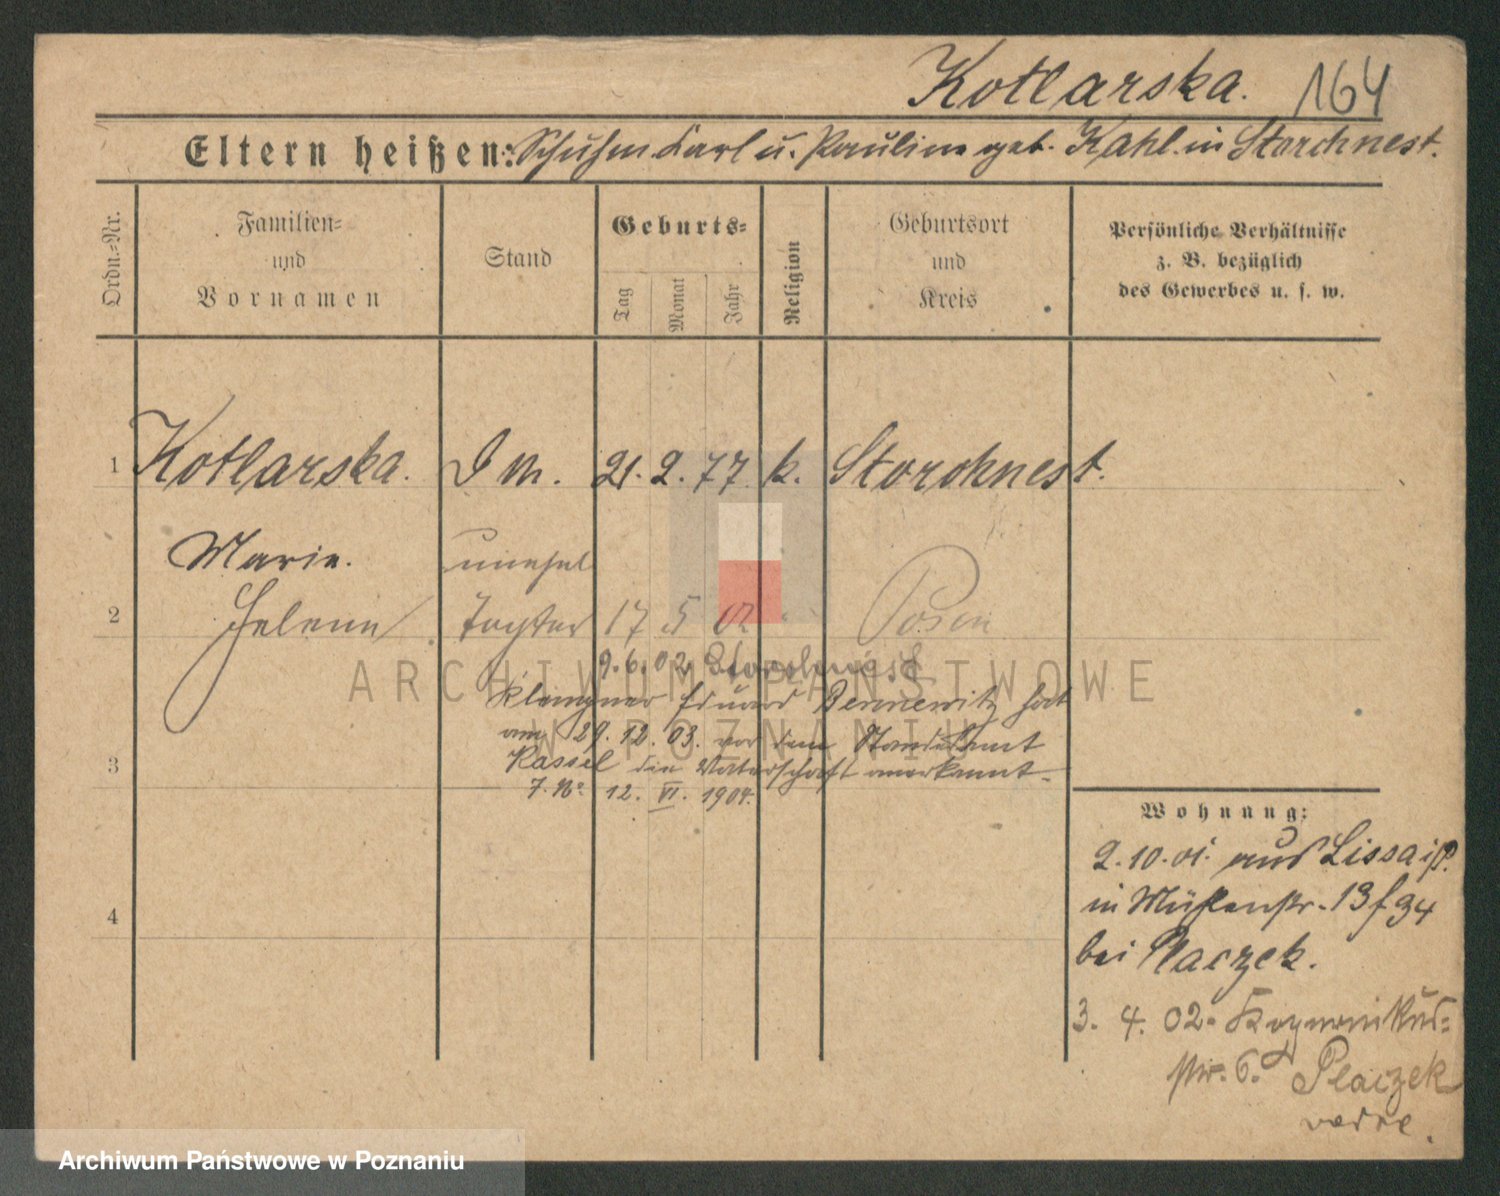 Kotlarska. 164
Eltern heißen: Schuhm. Karl u. Pauline geb. Kahl in Storchnest.
Ordn.-Nr.
Familien-
und
Vornamen
Stand
Geburts-
Tag
Monat
Jahr
Religion
Geburtsort
und
Kreis
Persönliche Verhältnisse
z. B. bezüglich
des Gewerbes u. s. w.
1 Kotlarska. D M. 21. 2. 77. k. Storchnest.
Marie. unehel
2 Helene Tochter 17 5 02 Posen
9.6.02 Storchnest
ARCHIWUM PAŃSTWOWE
W POZNANIU
Klempner Eduard Bennewitz hat
am 29. 12. 03. vor dem Standesamt
3 Kassel die Vaterschaft anerkannt.
J. No 12. VI. 1904.
4
Wohnung:
2.10.01. aus Lissa i/P.
in Mühlenstr. 13 f 94
bei Placzek.
3. 4. 02.
str. 6. Placzek
Archiwum Państwowe w Poznaniu